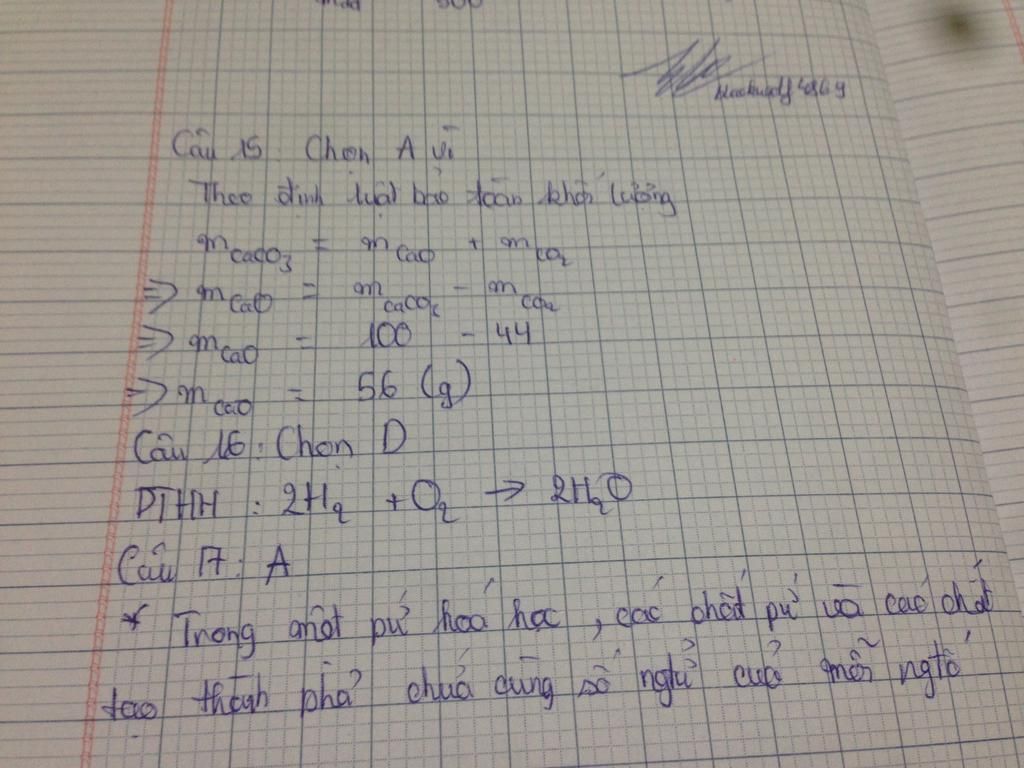 500
Câu 15: Chọn A vì
Theo định luật bảo toàn khối lượng
mCaCO3 = mCaO + mCO2
=> mCaO = mCaCO2 - mCO2
=> mCaO = 100 - 44
=> mCaO = 56 (g)
Câu 16: Chọn D
PTHH : 2H2 + O2 -> 2H2O
Câu 17: A
* Trong một pứ hoá học, các chất pứ và các chất
tạo thành phải chứa cùng số ngtử của mỗi ngtố